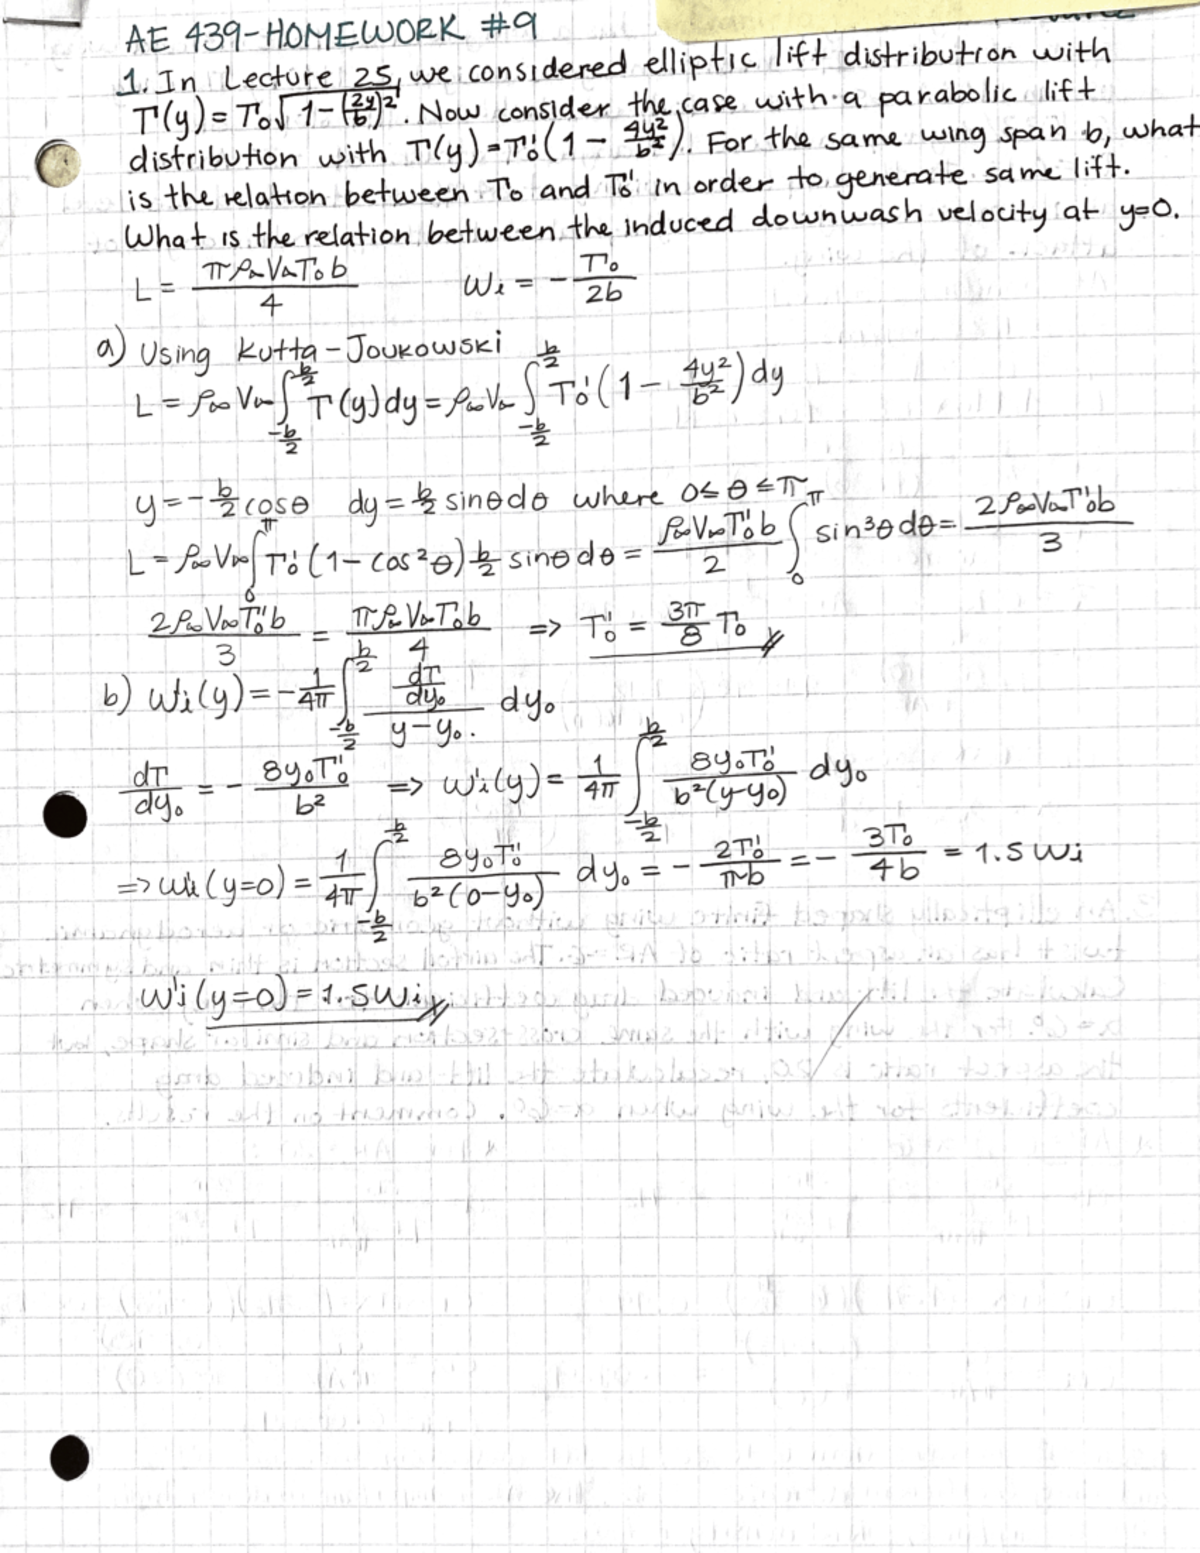 AE 439-HOMEWORK #9
1. In Lecture 25, we considered elliptic lift distribution with
Γ(y) = Γ₀√(1-(2y/b)²). Now consider the case with a parabolic lift
distribution with Γ(y) = Γ₀'(1 - 4y²/b²). For the same wing span b, what
is the relation between Γ₀ and Γ₀' in order to generate same lift.
What is the relation between the induced downwash velocity at y=0.
L = πρ∞V∞Γ₀b/4 Wi = -Γ₀/2b
a) Using Kutta-Joukowski
L = ρ∞V∞ ∫_{-b/2}^{b/2} Γ(y)dy = ρ∞V∞ ∫_{-b/2}^{b/2} Γ₀'(1 - 4y²/b²)dy
y = -b/2 cosθ dy = b/2 sinθdθ where 0≤θ≤π
L = ρ∞V∞ ∫_0^π Γ₀'(1-cos²θ) b/2 sinθdθ = ρ∞V∞Γ₀'b/2 ∫_0^π sin³θdθ = 2ρ∞V∞Γ₀'b/3
2ρ∞V∞Γ₀'b/3 = πρ∞V∞Γ₀b/4 => Γ₀' = 3π/8 Γ₀
b) Wi'(y) = -1/4π ∫_{-b/2}^{b/2} (dΓ/dy₀)/(y-y₀) dy₀
dΓ/dy₀ = -8y₀Γ₀'/b² => Wi'(y) = 1/4π ∫_{-b/2}^{b/2} 8y₀Γ₀'/b²(y-y₀) dy₀
=> Wi'(y=0) = 1/4π ∫_{-b/2}^{b/2} 8y₀Γ₀'/b²(0-y₀) dy₀ = -2Γ₀'/πb = -3Γ₀/4b = 1.5Wi
Wi'(y=0) = 1.5Wi